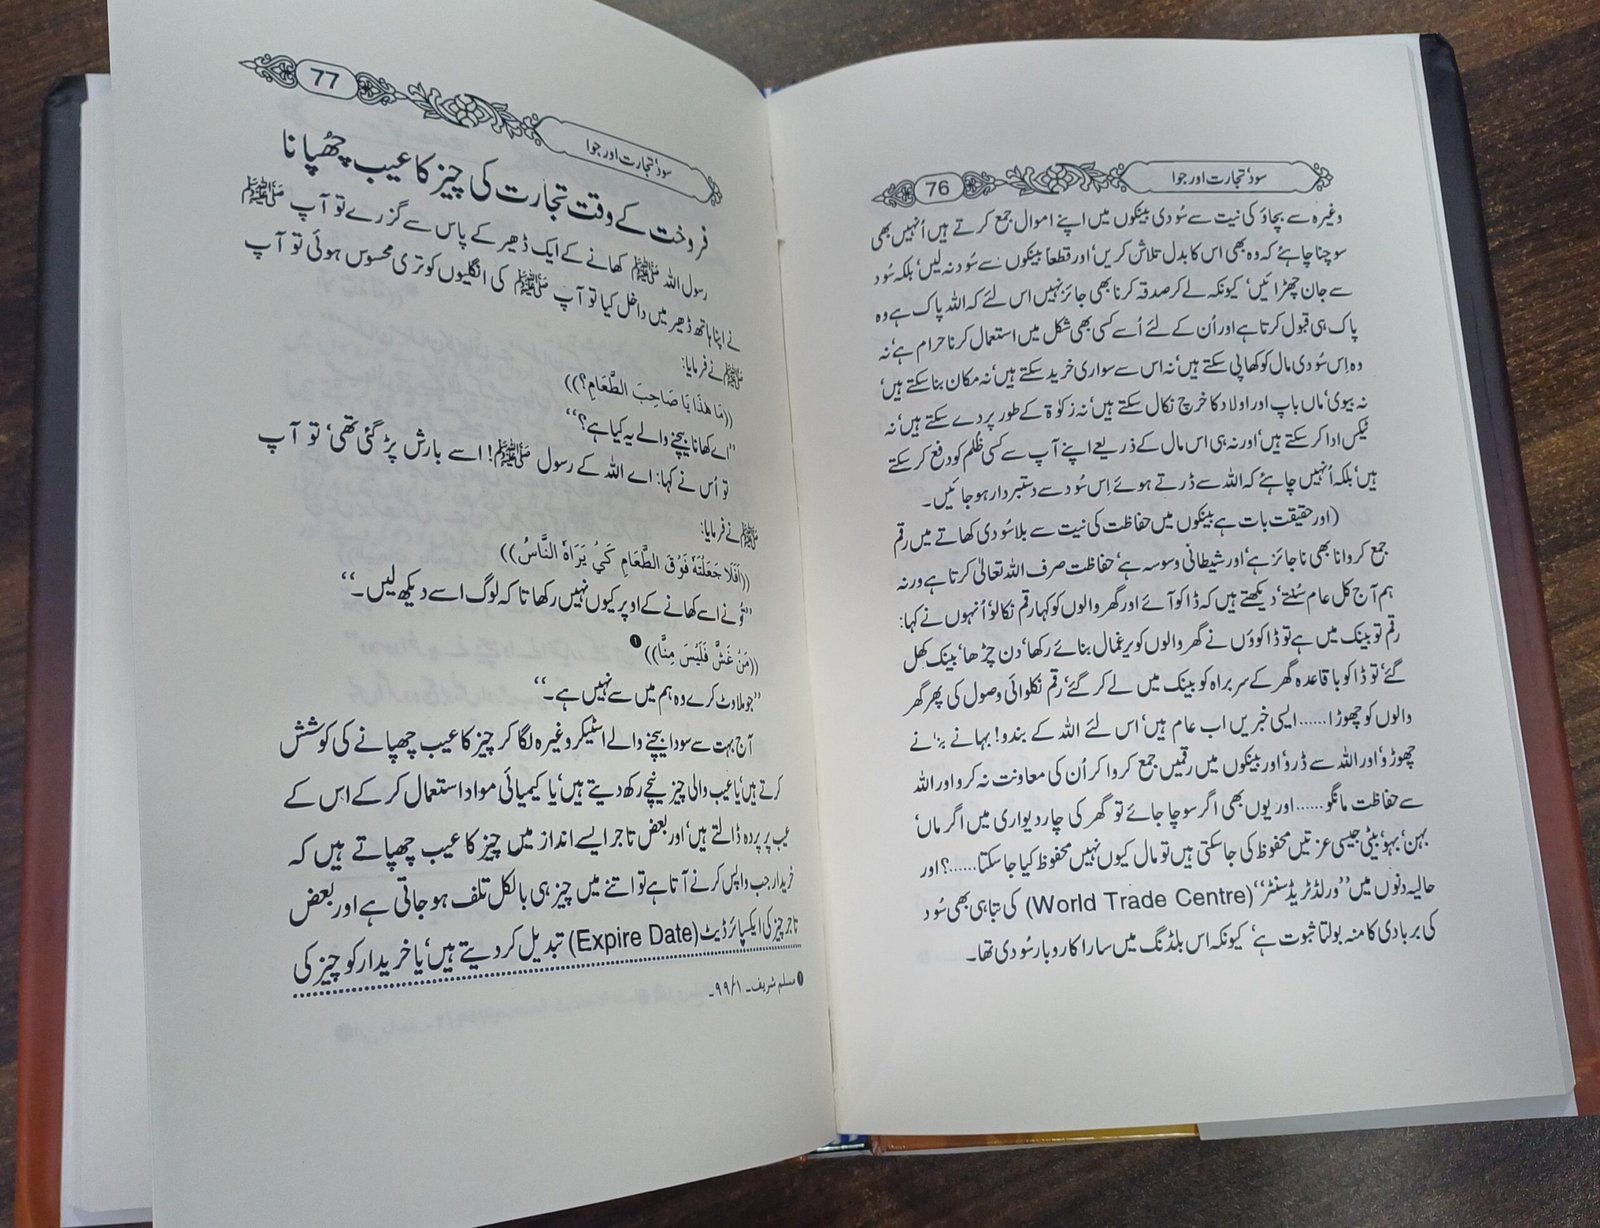 76
سود‘ تجارت اور جوا
وغیرہ سے بچاؤ کی نیت سے سُودی بینکوں میں اپنے اموال جمع کرتے ہیں اُنہیں بھی
سوچنا چاہئے کہ وہ بھی اس کا بدل تلاش کریں‘ اور قطعاً بینکوں سے سُود نہ لیں‘ بلکہ سُود
سے جان چھڑائیں‘ کیونکہ لے کر صدقہ کرنا بھی جائز نہیں اس لئے کہ اللہ پاک ہے وہ
پاک ہی قبول کرتا ہے اور اُن کے لئے اُسے کسی بھی شکل میں استعمال کرنا حرام ہے‘ نہ
وہ اِس سُودی مال کو کھا پی سکتے ہیں‘ نہ اس سے سواری خرید سکتے ہیں‘ نہ مکان بنا سکتے ہیں‘
نہ بیوی‘ ماں باپ اور اولاد کا خرچ نکال سکتے ہیں‘ نہ زکوٰۃ کے طور پر دے سکتے ہیں‘ نہ
ٹیکس ادا کر سکتے ہیں‘ اور نہ ہی اس مال کے ذریعے اپنے آپ سے کسی ظُلم کو دفع کر سکتے
ہیں‘ بلکہ اُنہیں چاہئے کہ اللہ سے ڈرتے ہوئے اِس سُود سے دستبردار ہو جائیں۔
(اور حقیقت بات ہے بینکوں میں حفاظت کی نیت سے بلا سُودی کھاتے میں رقم
جمع کروانا بھی ناجائز ہے‘ اور شیطانی وسوسہ ہے‘ حفاظت صرف اللہ تعالیٰ کرتا ہے ورنہ
ہم آج کل عام سُنتے‘ دیکھتے ہیں کہ ڈاکو آئے اور گھر والوں کو کہا رقم نکالو‘ اُنہوں نے کہا:
رقم تو بینک میں ہے تو ڈاکوؤں نے گھر والوں کو یرغمال بنائے رکھا‘ دن چڑھا‘ بینک کھل
گئے‘ تو ڈاکو باقاعدہ گھر کے سربراہ کو بینک میں لے کر گئے‘ رقم نکلوائی وصول کی پھر گھر
والوں کو چھوڑا...... ایسی خبریں اب عام ہیں‘ اس لئے اللہ کے بندو! بہانے بنانے
چھوڑو‘ اور اللہ سے ڈرو‘ اور بینکوں میں رقمیں جمع کروا کر اُن کی معاونت نہ کرو اور اللہ
سے حفاظت مانگو...... اور یوں بھی اگر سوچا جائے تو گھر کی چار دیواری میں اگر ماں‘
بہن‘ بہو‘ بیٹی جیسی عزتیں محفوظ کی جا سکتی ہیں تو مال کیوں نہیں محفوظ کیا جا سکتا......؟ اور
حالیہ دنوں میں ’’ورلڈ ٹریڈ سنٹر‘‘ (World Trade Centre) کی تباہی بھی سُود
کی بربادی کا منہ بولتا ثبوت ہے‘ کیونکہ اس بلڈنگ میں سارا کاروبار سُودی تھا۔
77
سود‘ تجارت اور جوا
فروخت کے وقت تجارت کی چیز کا عیب چھپانا
رسول اللہ ﷺ کھانے کے ایک ڈھیر کے پاس سے گزرے تو آپ ﷺ
نے اپنا ہاتھ ڈھیر میں داخل کیا تو آپ ﷺ کی انگلیوں کو تری محسوس ہوئی تو آپ
ﷺ نے فرمایا:
((مَا هٰذَا يَا صَاحِبَ الطَّعَامِ؟))
’’اے کھانا بیچنے والے یہ کیا ہے؟‘‘
تو اُس نے کہا: اے اللہ کے رسول ﷺ! اسے بارش پڑ گئی تھی‘ تو آپ
ﷺ نے فرمایا:
((اَفَلَا جَعَلْتَهٗ فَوْقَ الطَّعَامِ كَيْ يَرَاهُ النَّاسُ))
’’تُو نے اسے کھانے کے اوپر کیوں نہیں رکھا تاکہ لوگ اسے دیکھ لیں۔‘‘
((مَنْ غَشَّ فَلَيْسَ مِنَّا)) ❶
’’جو ملاوٹ کرے وہ ہم میں سے نہیں ہے۔‘‘
آج بہت سے سودا بیچنے والے اسٹیکر وغیرہ لگا کر چیز کا عیب چھپانے کی کوشش
کرتے ہیں‘ یا عیب والی چیز نیچے رکھ دیتے ہیں‘ یا کیمیائی مواد استعمال کر کے اس کے
عیب پر پردہ ڈالتے ہیں‘ اور بعض تاجر ایسے انداز میں چیز کا عیب چھپاتے ہیں کہ
خریدار جب واپس کرنے آتا ہے تو اتنے میں چیز ہی بالکل تلف ہو جاتی ہے اور بعض
تاجر چیز کی ایکسپائر ڈیٹ (Expire Date) تبدیل کر دیتے ہیں‘ یا خریدار کو چیز کی
❶ مسلم شریف۔ ۱/۹۹۔